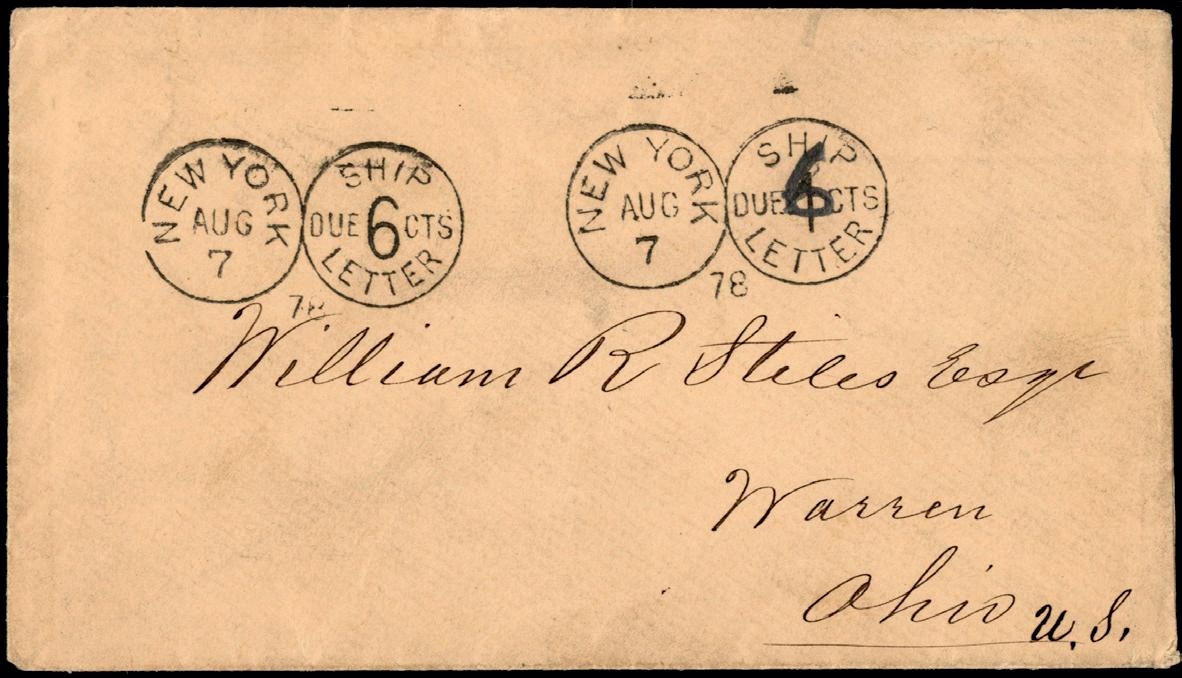 NEW YORK
AUG
7
78
SHIP
DUE 6 CTS
LETTER
NEW YORK
AUG
7
78
SHIP
DUE 6 CTS
LETTER
William R Stiles Esqr
Warren
Ohio U.S.